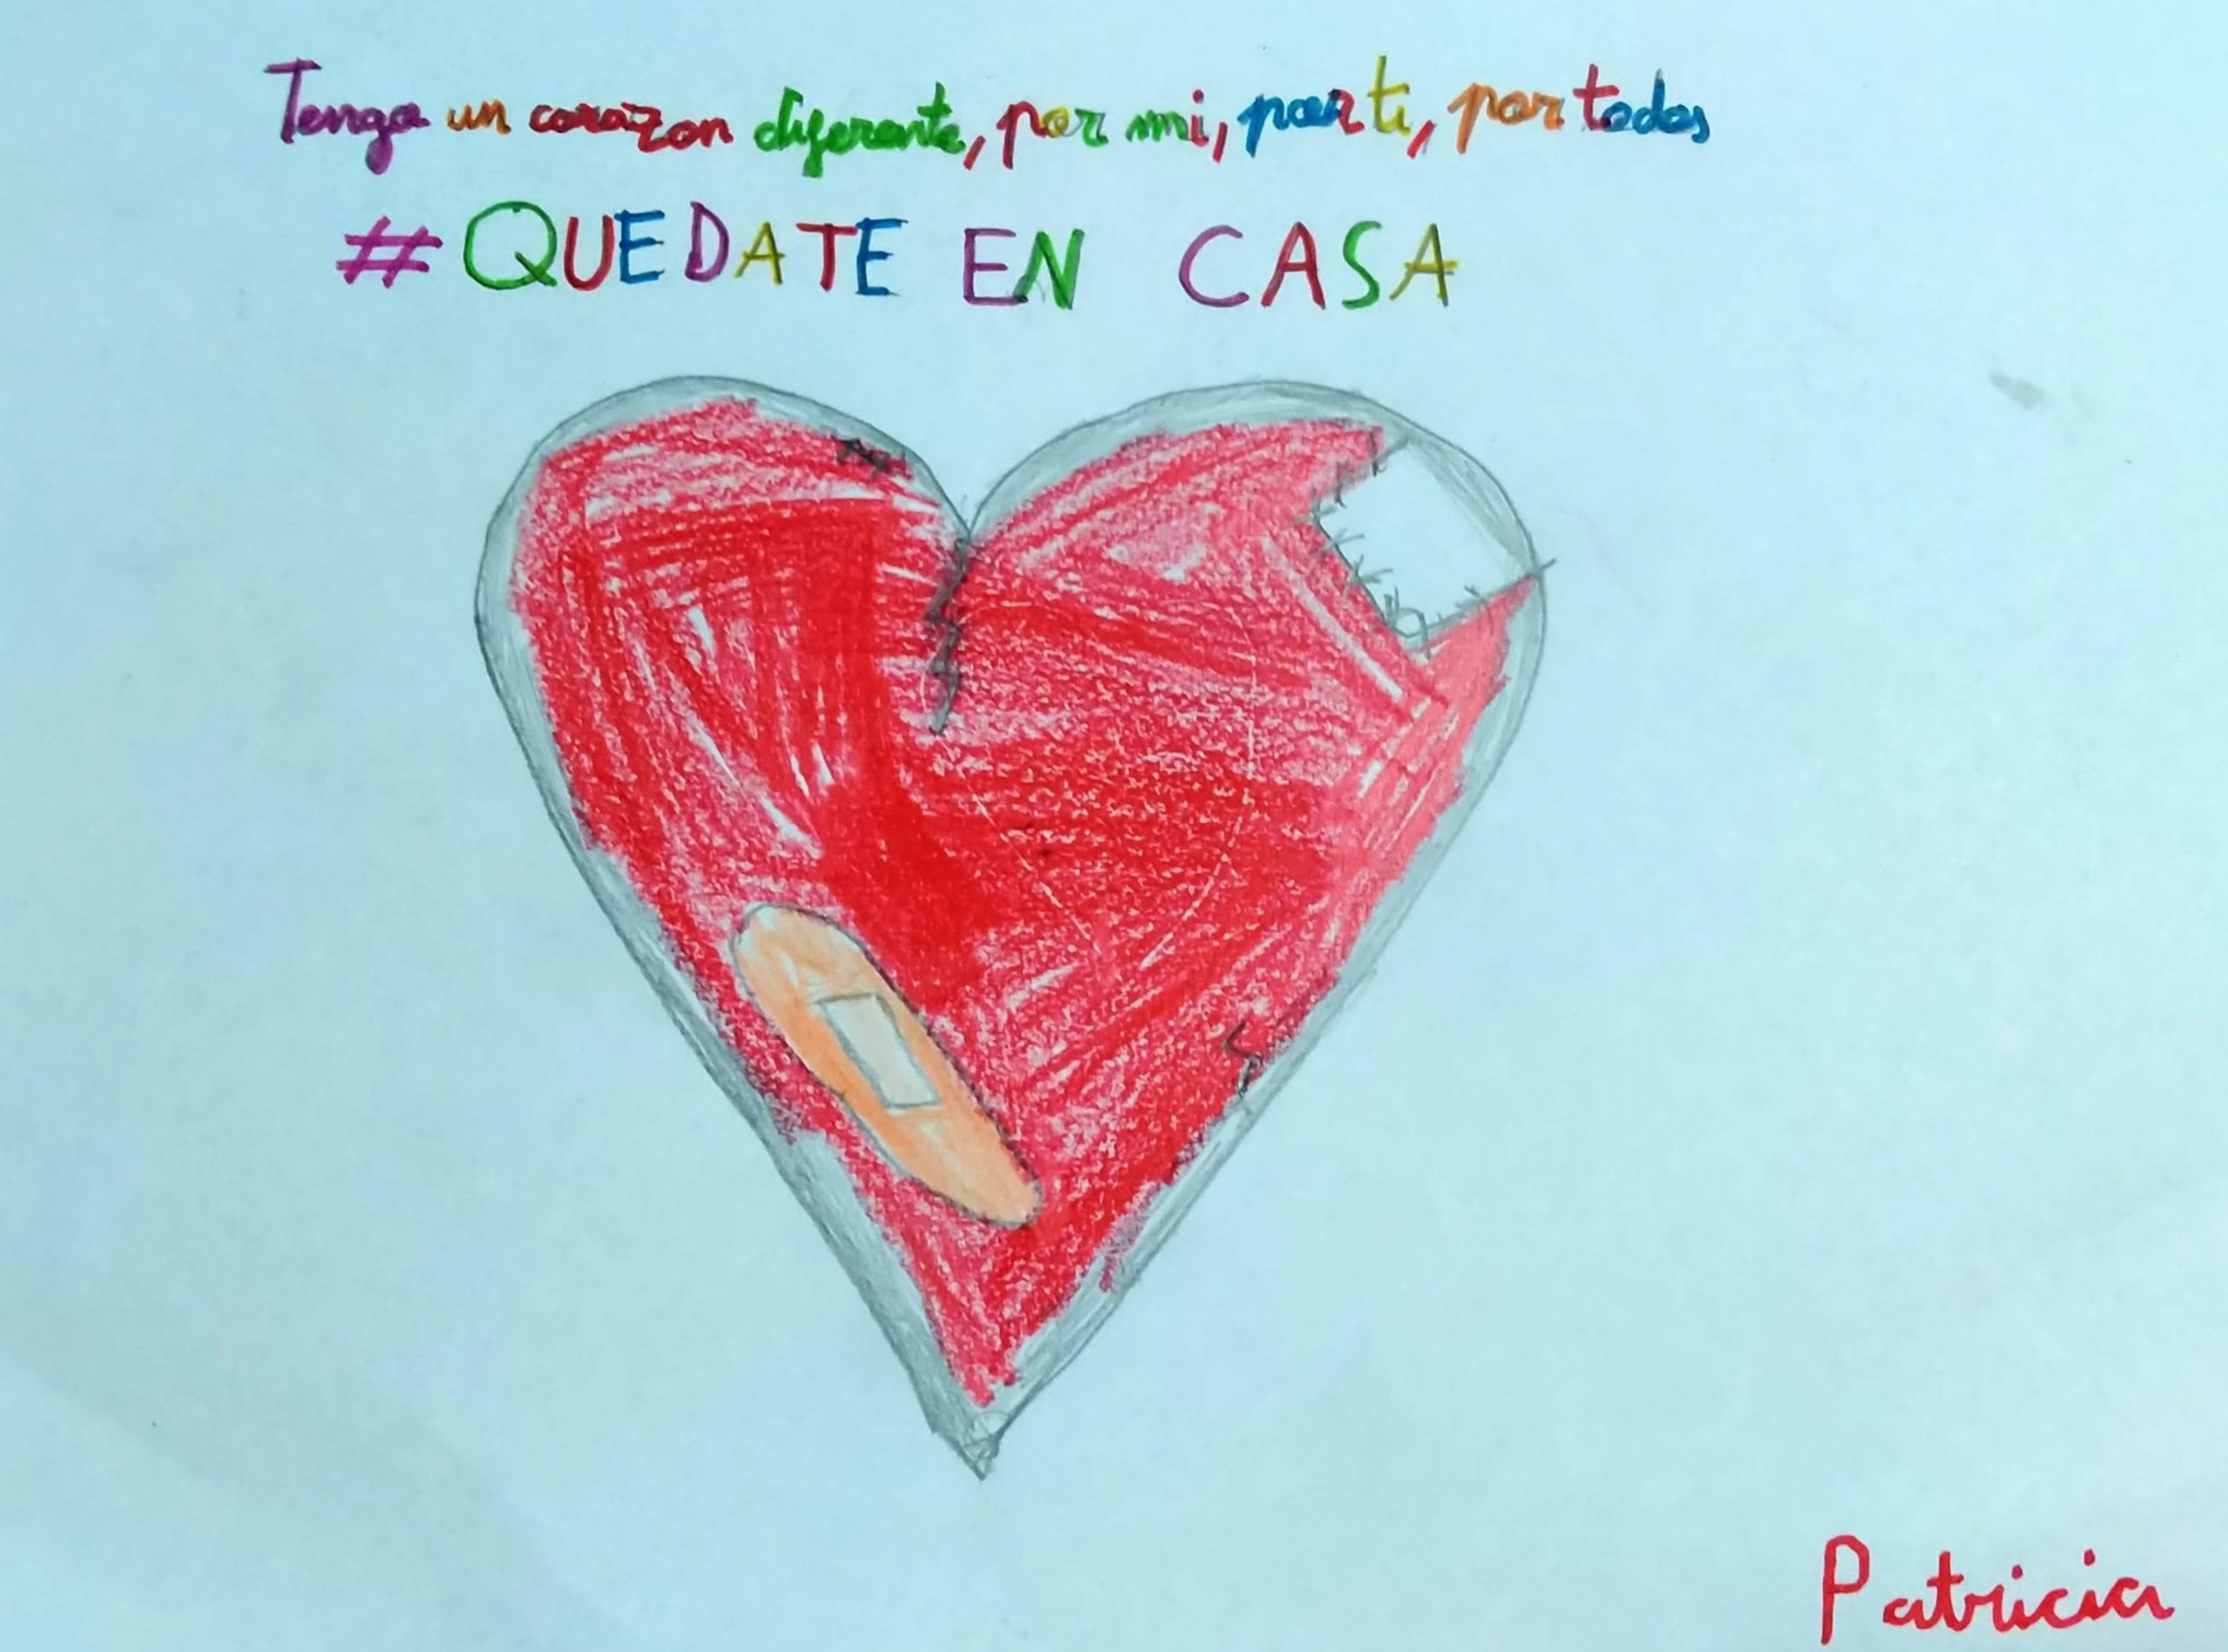 Tengo un corazon diferente, por mi, por ti, por todos
# QUEDATE EN CASA
Patricia